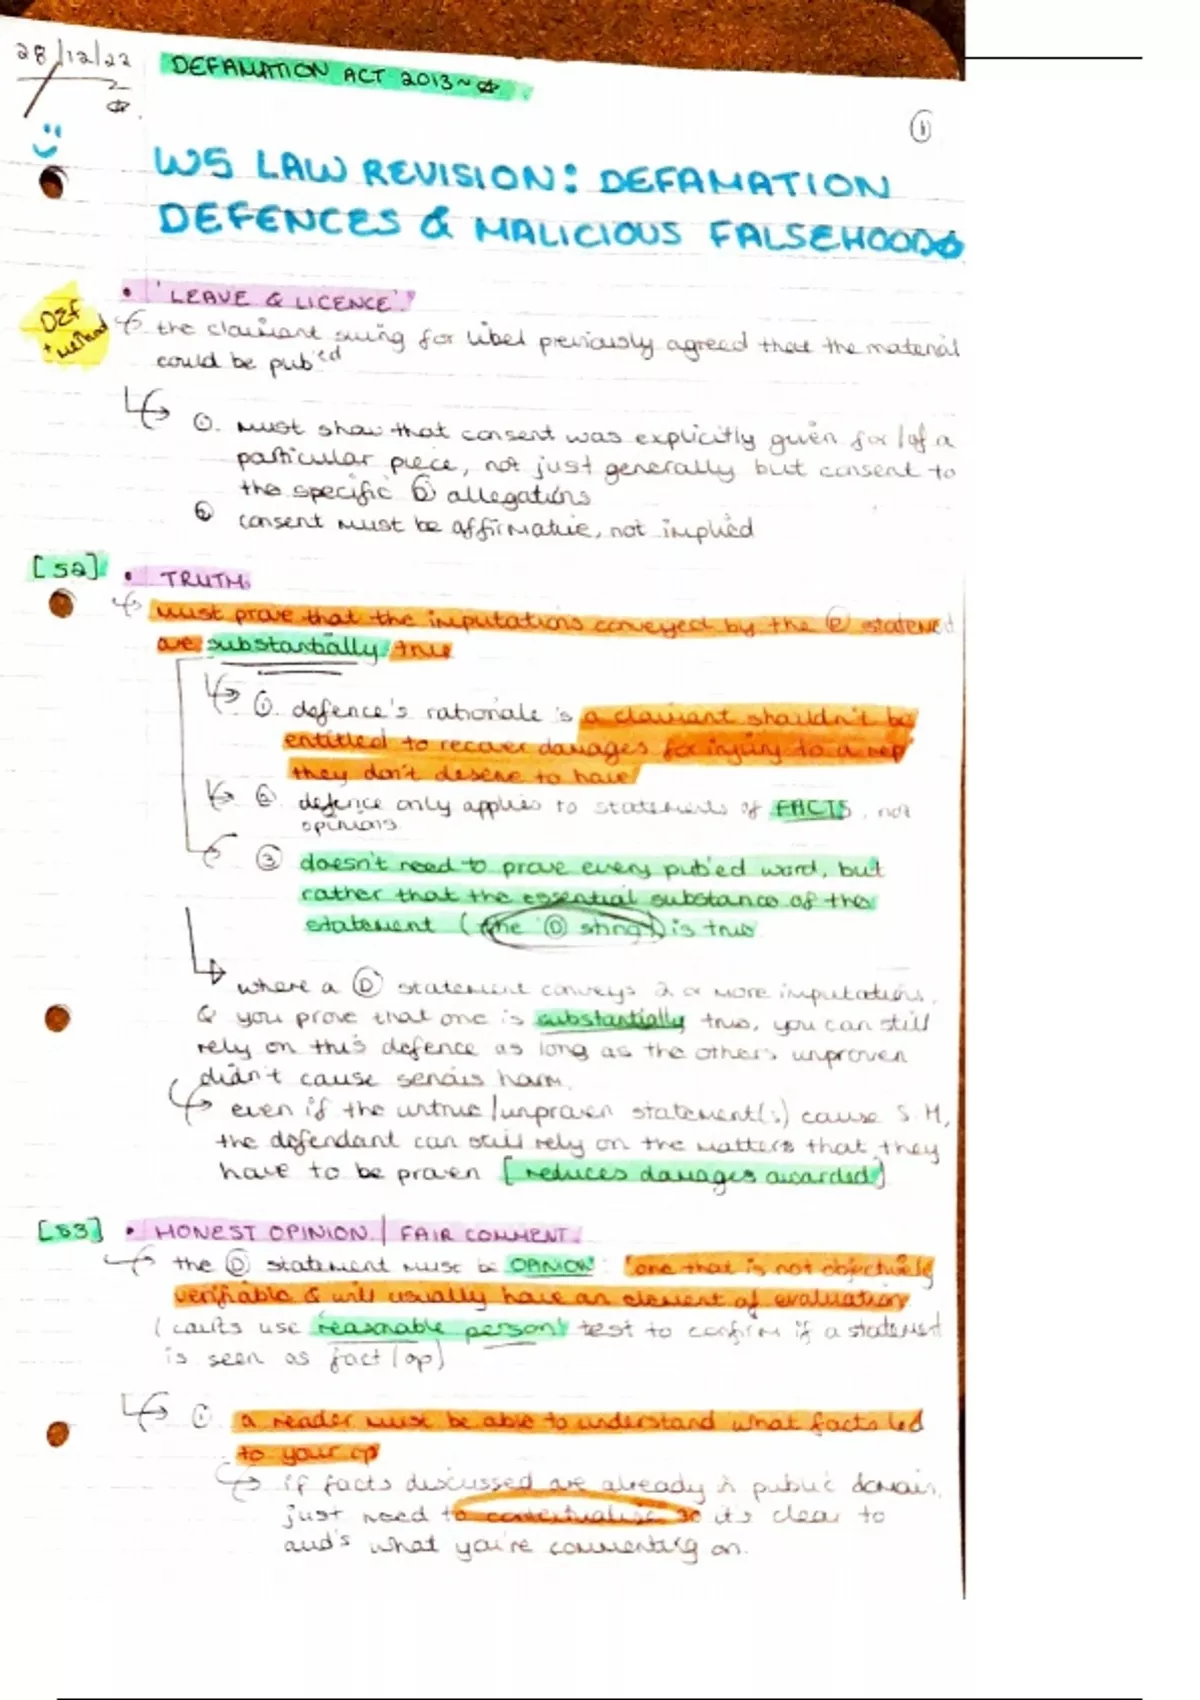 28/12/22
DEFAMATION ACT 2013~
1
W5 LAW REVISION: DEFAMATION
DEFENCES & MALICIOUS FALSEHOODS
• 'LEAVE & LICENCE':
DEF
+ method
the claimant suing for libel previously agreed that the material
could be pub'ed
①. must show that consent was explicitly given for/of a
particular piece, not just generally but consent to
the specific Ⓓ allegations
② consent must be affirmative, not implied
[S2] • TRUTH:
must prove that the imputations conveyed by the Ⓓ statement
are substantially true
①. defence's rationale is a claimant shouldn't be
entitled to recover damages for injury to a rep
they don't deserve to have
②. defence only applies to statements of FACTS, not
opinions
③ doesn't need to prove every pub'ed word, but
rather that the essential substance of the
statement (the Ⓓ sting) is true
where a Ⓓ statement conveys 2 or more imputations,
& you prove that one is substantially true, you can still
rely on this defence as long as the others unproven
didn't cause serious harm.
even if the untrue/unproven statement(s) cause S.H,
the defendant can still rely on the matters that they
have to be proven [reduces damages awarded]
[S3] • HONEST OPINION / FAIR COMMENT:
the Ⓓ statement must be OPINION: 'one that is not objectively
verifiable & will usually have an element of evaluation'
(courts use 'reasonable person' test to confirm if a statement
is seen as fact/op)
① a reader must be able to understand what facts led
to your op
if facts discussed are already in public domain,
just need to contextualise so its clear to
aud's what you're commenting on.